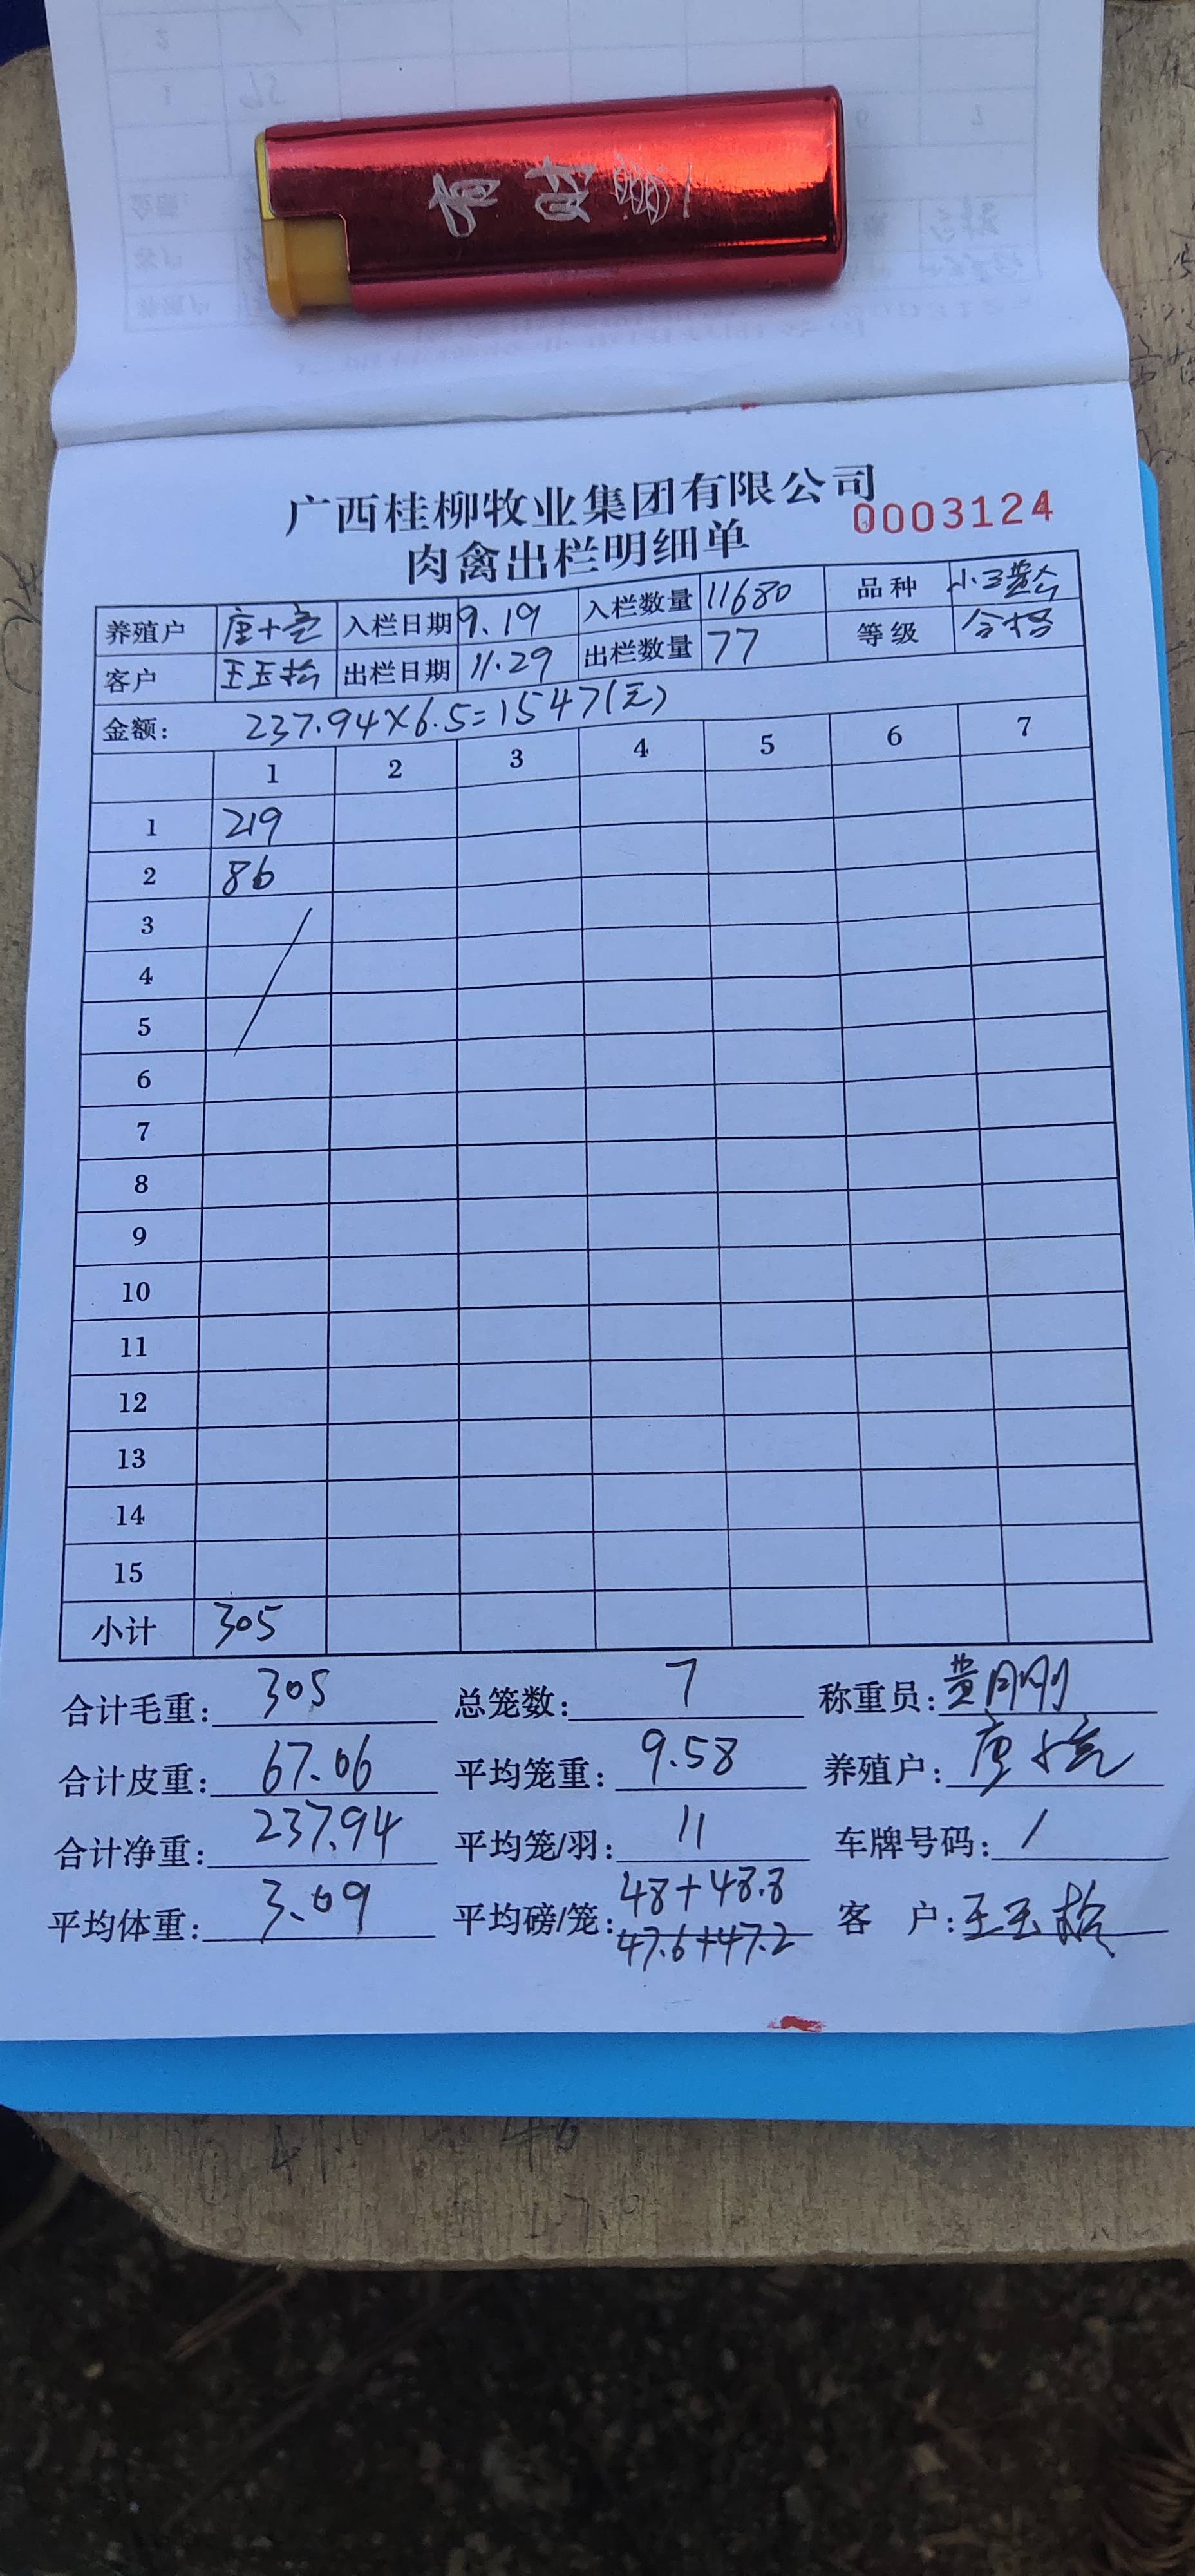 广西桂柳牧业集团有限公司
0003124
肉禽出栏明细单
养殖户 唐十亮 入栏日期 9.19 入栏数量 11680 品种 小三黄
客户 王玉松 出栏日期 11.29 出栏数量 77 等级 合格
金额: 237.94×6.5=1547(元)
1 2 3 4 5 6 7
1 219
2 86
3
4
5
6
7
8
9
10
11
12
13
14
15
小计 305
合计毛重: 305 总笼数: 7 称重员: 黄刚刚
合计皮重: 67.06 平均笼重: 9.58 养殖户: 唐十亮
合计净重: 237.94 平均笼/羽: 11 车牌号码: /
平均体重: 3.09 平均磅/笼: 48+48.8 客 户: 王玉松
47.6+47.2